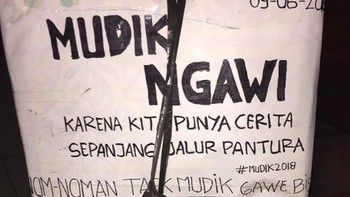 09-06-20
MUDIK
NGAWI
KARENA KITA PUNYA CERITA
SEPANJANG JALUR PANTURA
#MUDIK2018
NOM-NOMAN TAEK MUDIK GAWE BI